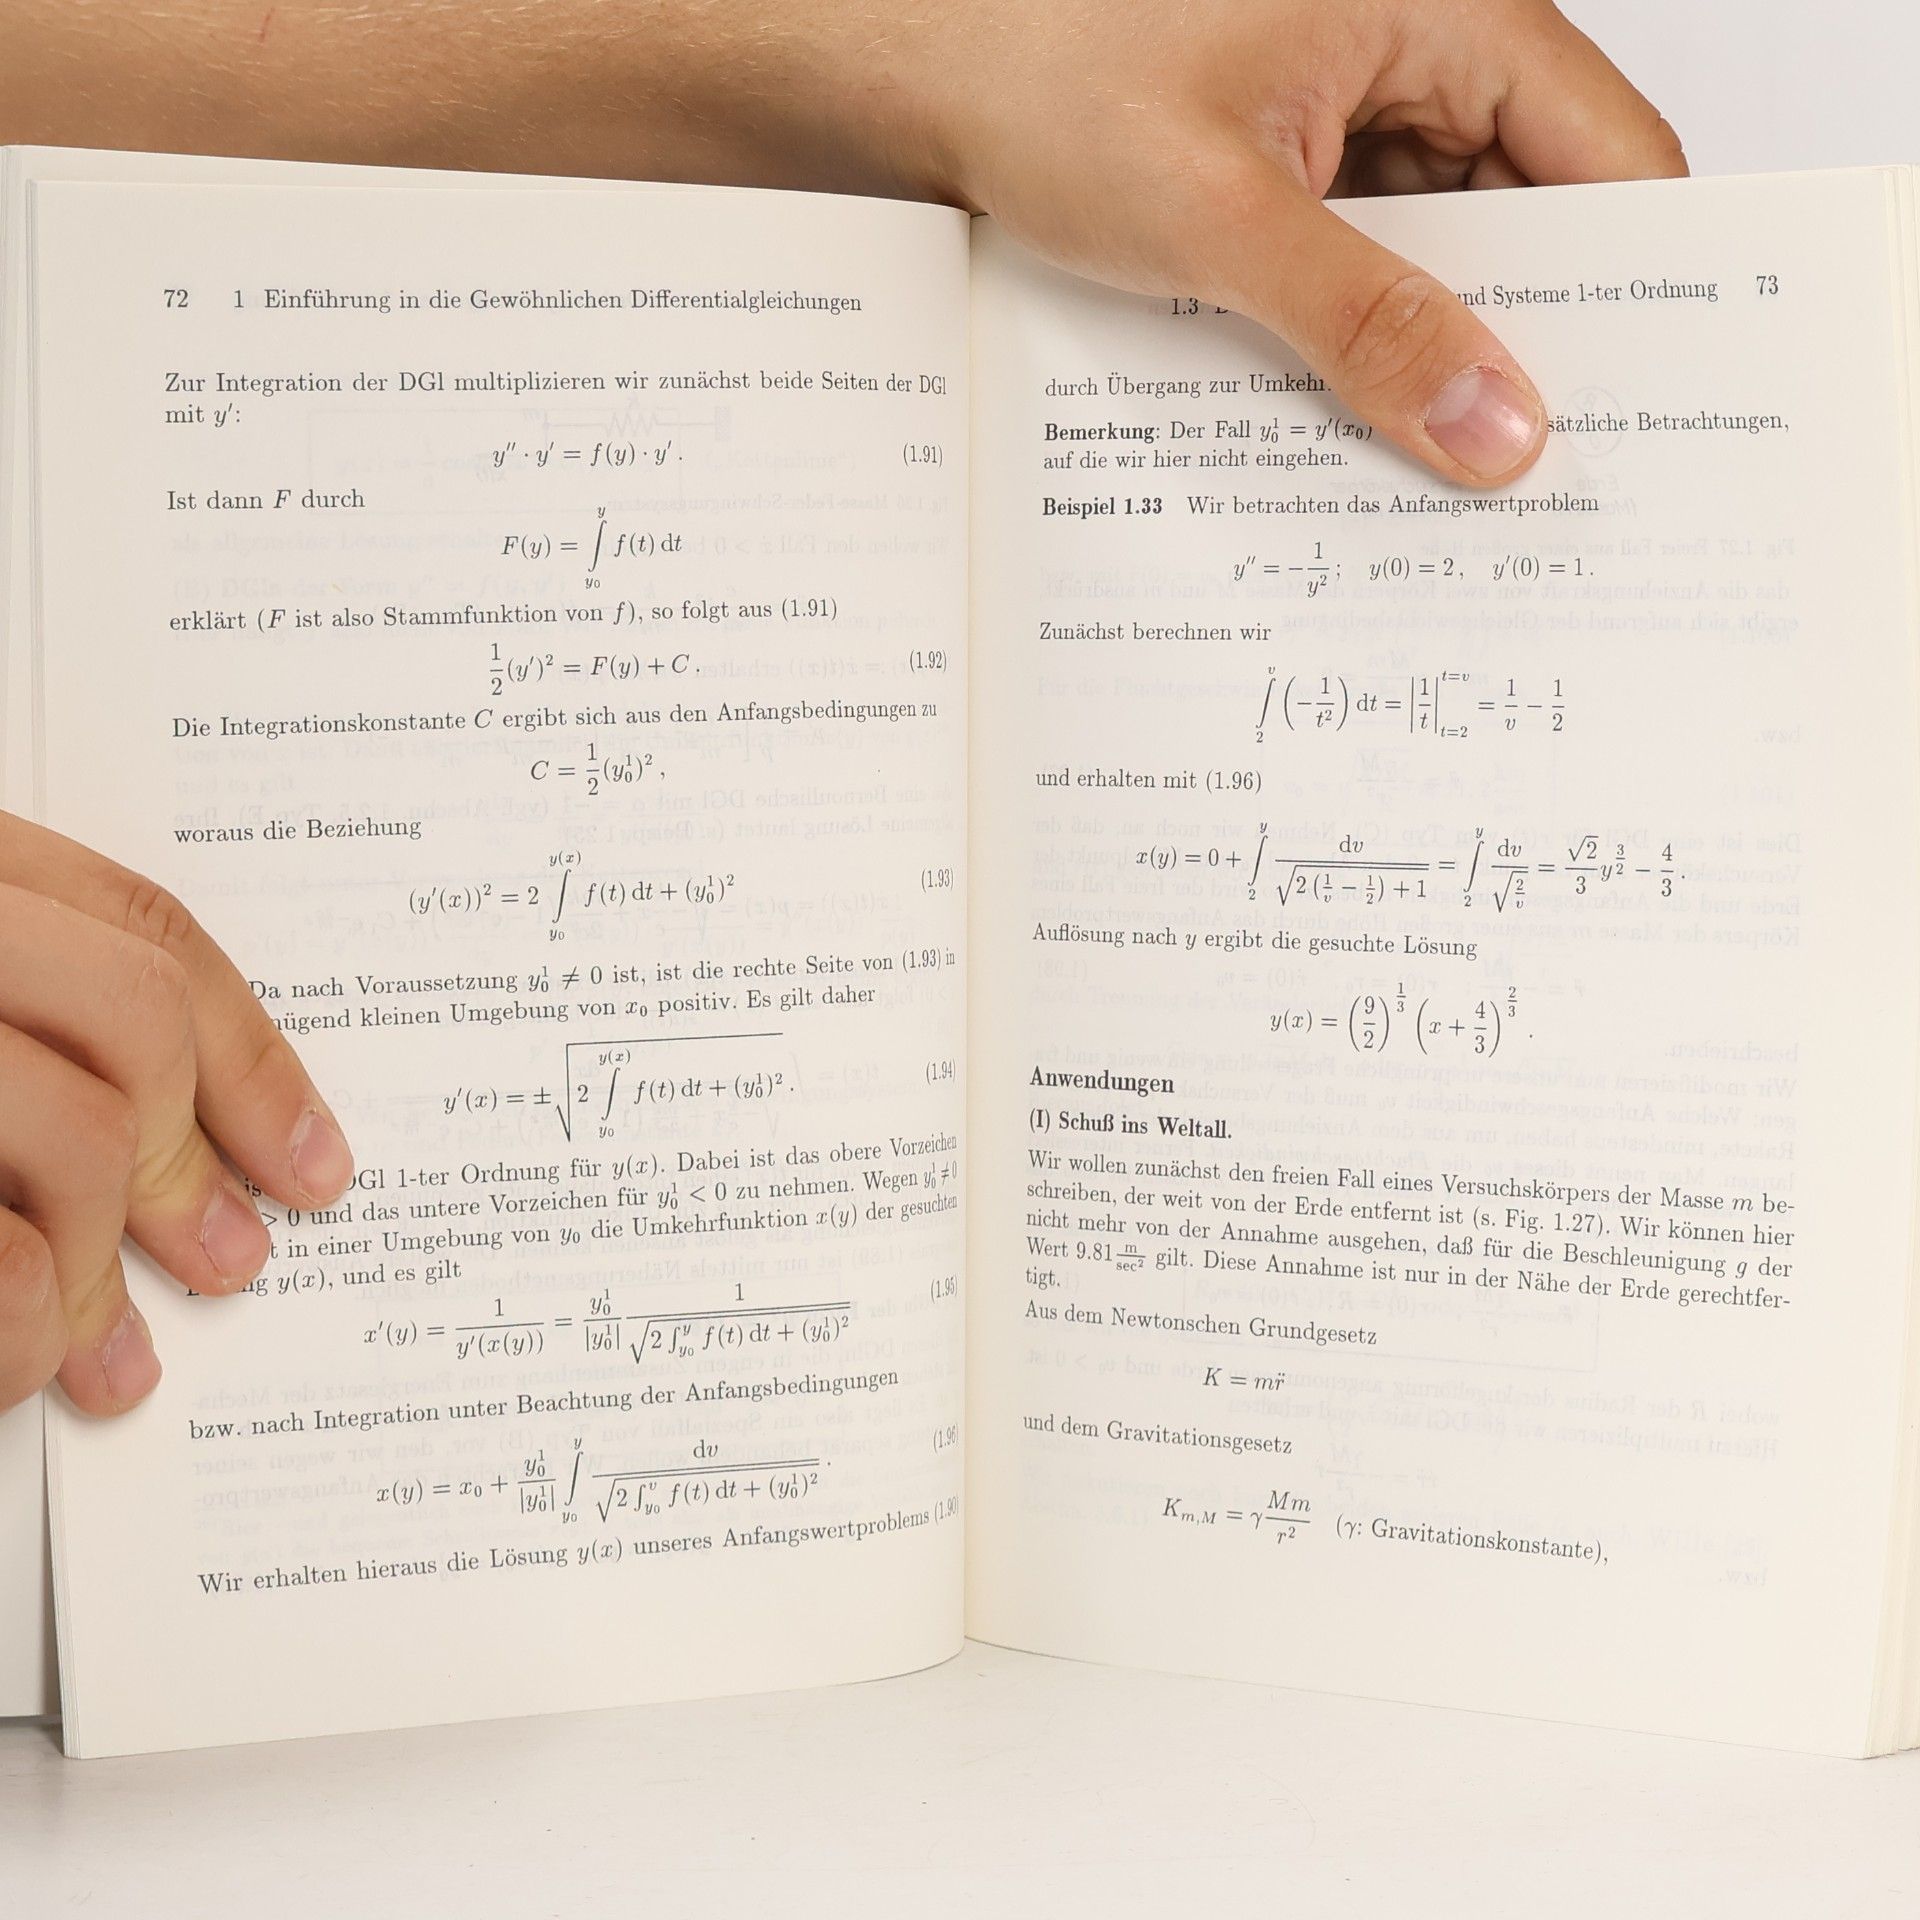 72 1 Einführung in die Gewöhnlichen Differentialgleichungen
Zur Integration der DGl multiplizieren wir zunächst beide Seiten der DGl
mit y′:
y″ · y′ = f(y) · y′ . (1.91)
Ist dann F durch
F(y) = ∫_{y₀}^{y} f(t) dt
erklärt (F ist also Stammfunktion von f), so folgt aus (1.91)
1/2 (y′)² = F(y) + C . (1.92)
Die Integrationskonstante C ergibt sich aus den Anfangsbedingungen zu
C = 1/2 (y₀¹)² ,
woraus die Beziehung
(y′(x))² = 2 ∫_{y₀}^{y(x)} f(t) dt + (y₀¹)² (1.93)
Da nach Voraussetzung y₀¹ ≠ 0 ist, ist die rechte Seite von (1.93) in
kleinen Umgebung von x₀ positiv. Es gilt daher
y′(x) = ± √(2 ∫_{y₀}^{y(x)} f(t) dt + (y₀¹)²) . (1.94)
DGl 1-ter Ordnung für y(x). Dabei ist das obere Vorzeichen
> 0 und das untere Vorzeichen für y₀¹ < 0 zu nehmen. Wegen y₀¹ ≠ 0
in einer Umgebung von y₀ die Umkehrfunktion x(y) der gesuchten
y(x), und es gilt
x′(y) = 1/(y′(x(y))) = y₀¹/|y₀¹| 1/√(2 ∫_{y₀}^{y} f(t) dt + (y₀¹)²) (1.95)
bzw. nach Integration unter Beachtung der Anfangsbedingungen
x(y) = x₀ + y₀¹/|y₀¹| ∫_{y₀}^{y} dv/√(2 ∫_{y₀}^{v} f(t) dt + (y₀¹)²) . (1.96)
Wir erhalten hieraus die Lösung y(x) unseres Anfangswertproblems (1.90)
1.3 und Systeme 1-ter Ordnung 73
durch Übergang zur
Bemerkung: Der Fall y₀¹ = y′(x₀) Betrachtungen,
auf die wir hier nicht eingehen.
Beispiel 1.33 Wir betrachten das Anfangswertproblem
y″ = −1/y² ; y(0) = 2 , y′(0) = 1 .
Zunächst berechnen wir
∫_{2}^{v} (−1/t²) dt = |1/t|_{t=2}^{t=v} = 1/v − 1/2
und erhalten mit (1.96)
x(y) = 0 + ∫_{2}^{y} dv/√(2 (1/v − 1/2) + 1) = ∫_{2}^{y} dv/√(2/v) = √2/3 y^{3/2} − 4/3 .
Auflösung nach y ergibt die gesuchte Lösung
y(x) = (9/2)^{1/3} (x + 4/3)^{2/3} .
Anwendungen
(I) Schuß ins Weltall.
Wir wollen zunächst den freien Fall eines Versuchskörpers der Masse m be-
schreiben, der weit von der Erde entfernt ist (s. Fig. 1.27). Wir können hier
nicht mehr von der Annahme ausgehen, daß für die Beschleunigung g der
Wert 9.81 m/sec² gilt. Diese Annahme ist nur in der Nähe der Erde gerechtfer-
tigt.
Aus dem Newtonschen Grundgesetz
K = mr̈
und dem Gravitationsgesetz
K_{m,M} = γ Mm/r² (γ: Gravitationskonstante),